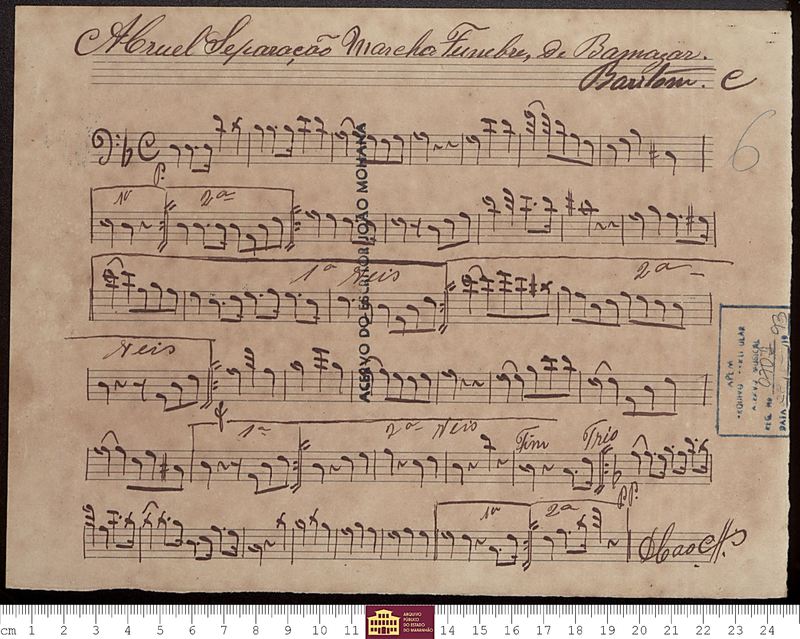 A Cruel Separação Marcha Funebre, de Bamazar.
Baritom. C
6
P.
1ª 2ª
1ª Veis 2ª
Veis
f
1ª 2ª Veis Fim Trio
PP.
1ª 2ª
ACERVO DO ESCRITOR JOÃO MOHANA
APEM
ACERVO MUSICAL
REG. Nº 0707
DATA 93
cm 1 2 3 4 5 6 7 8 9 10 11 14 15 16 17 18 19 20 21 22 23 24
ARQUIVO
PÚBLICO
DO ESTADO
DO MARANHÃO